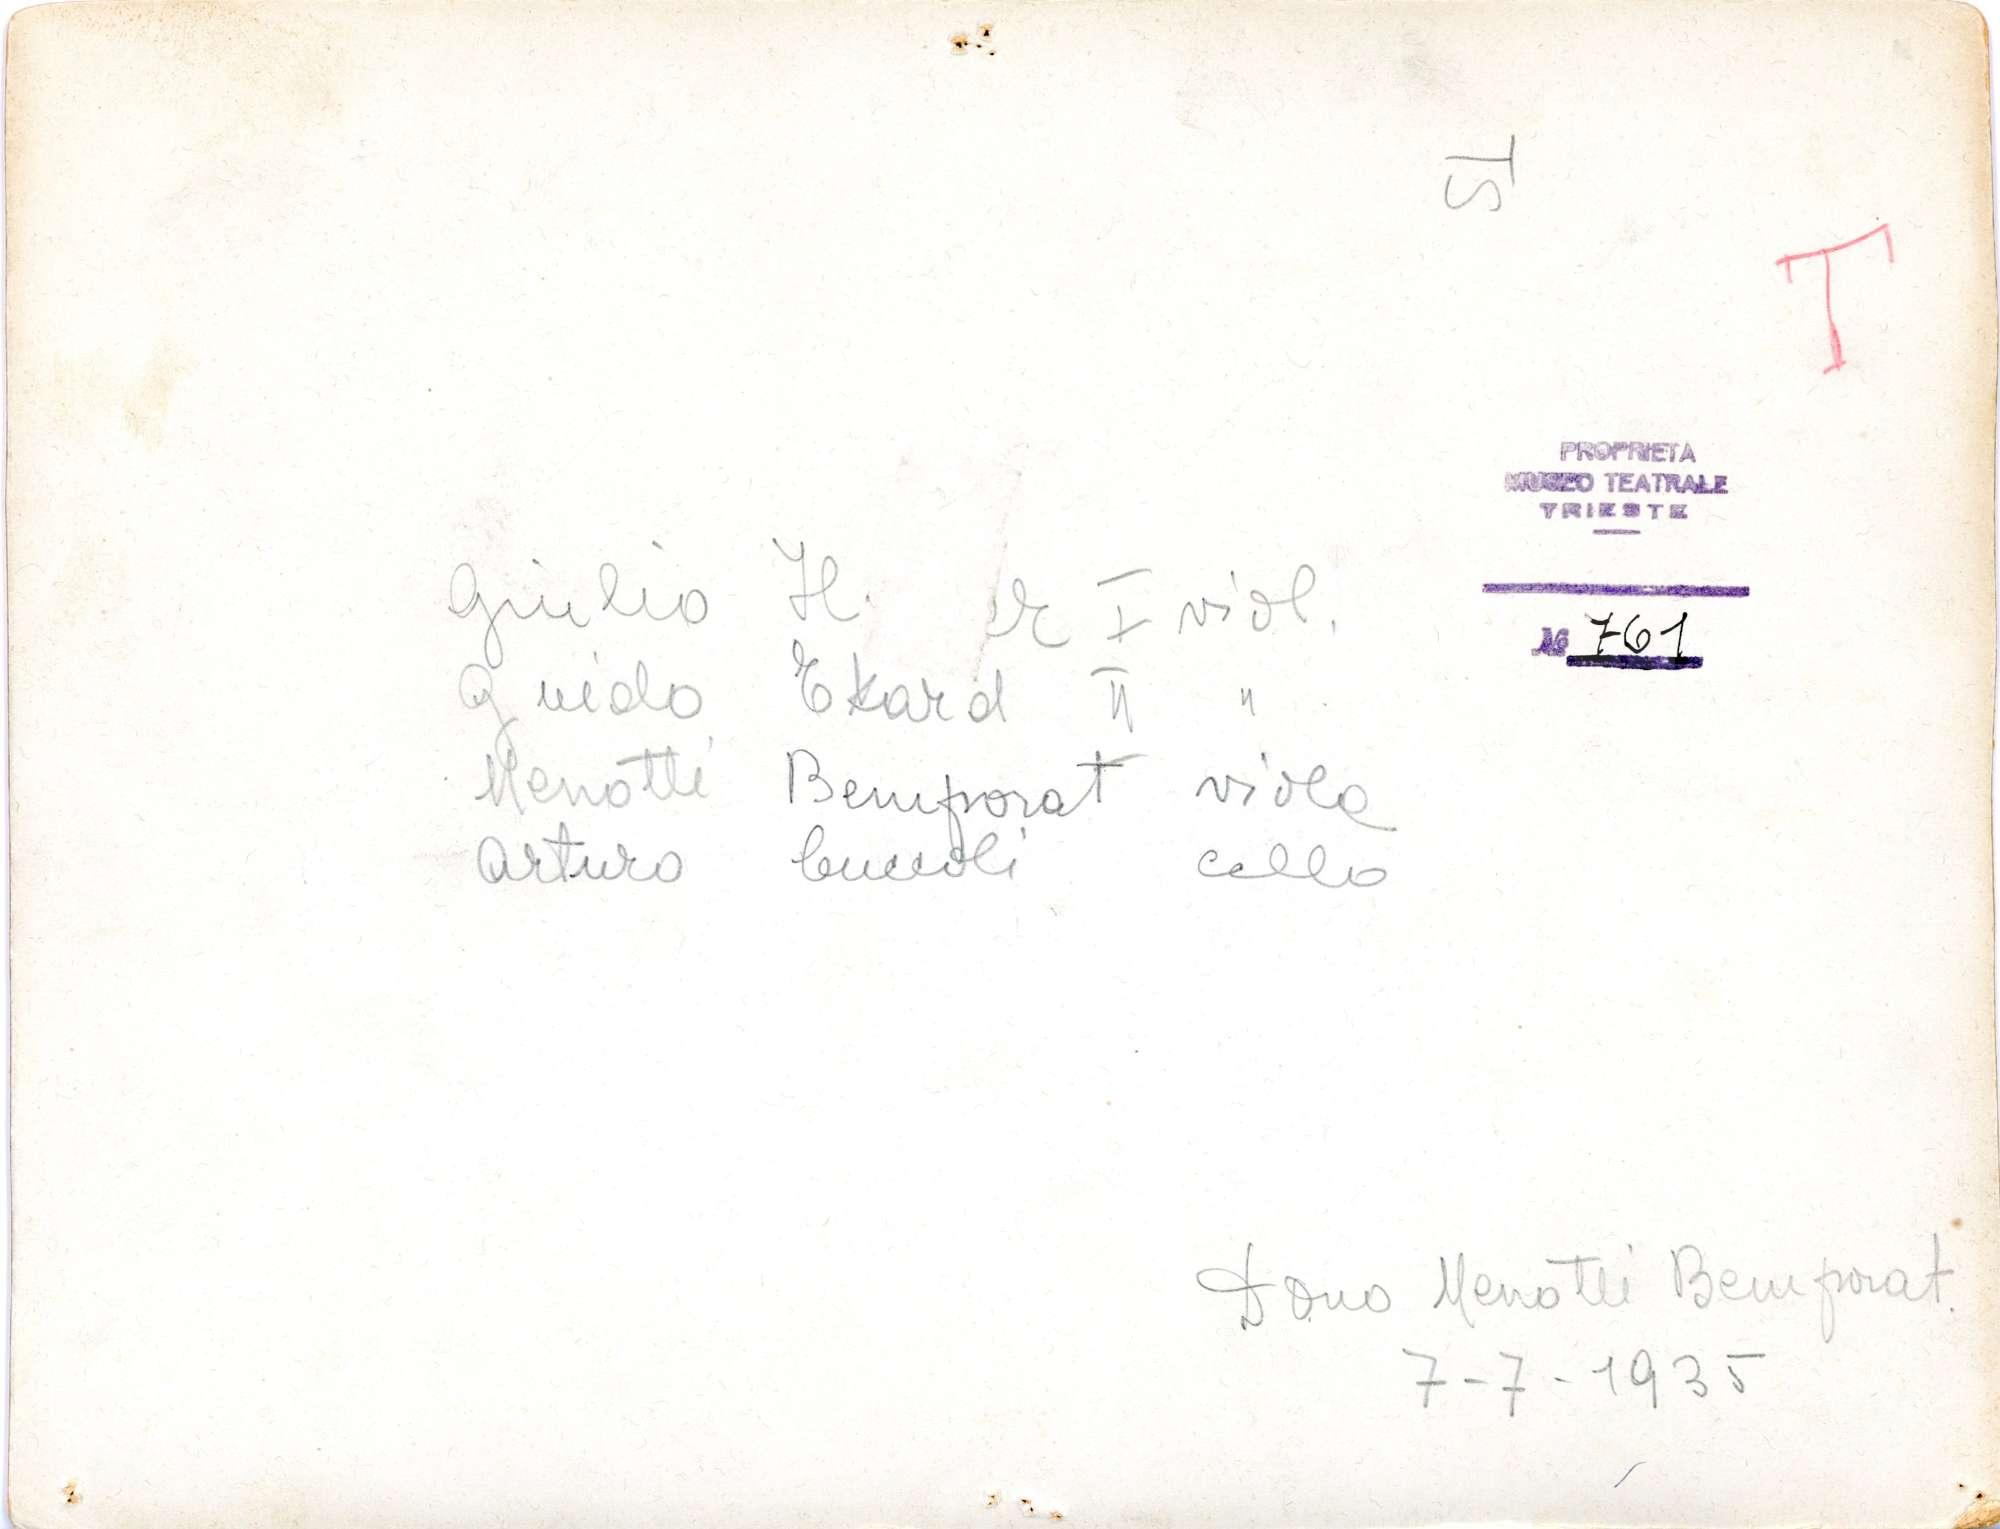 ST
T
PROPRIETA
MUSEO TEATRALE
TRIESTE
№ 761
Giulio H. I viol.
Guido Ekard II "
Menotti Bemporat viola
Arturo Cuccoli cello
Dono Menotti Bemporat.
7-7-1935